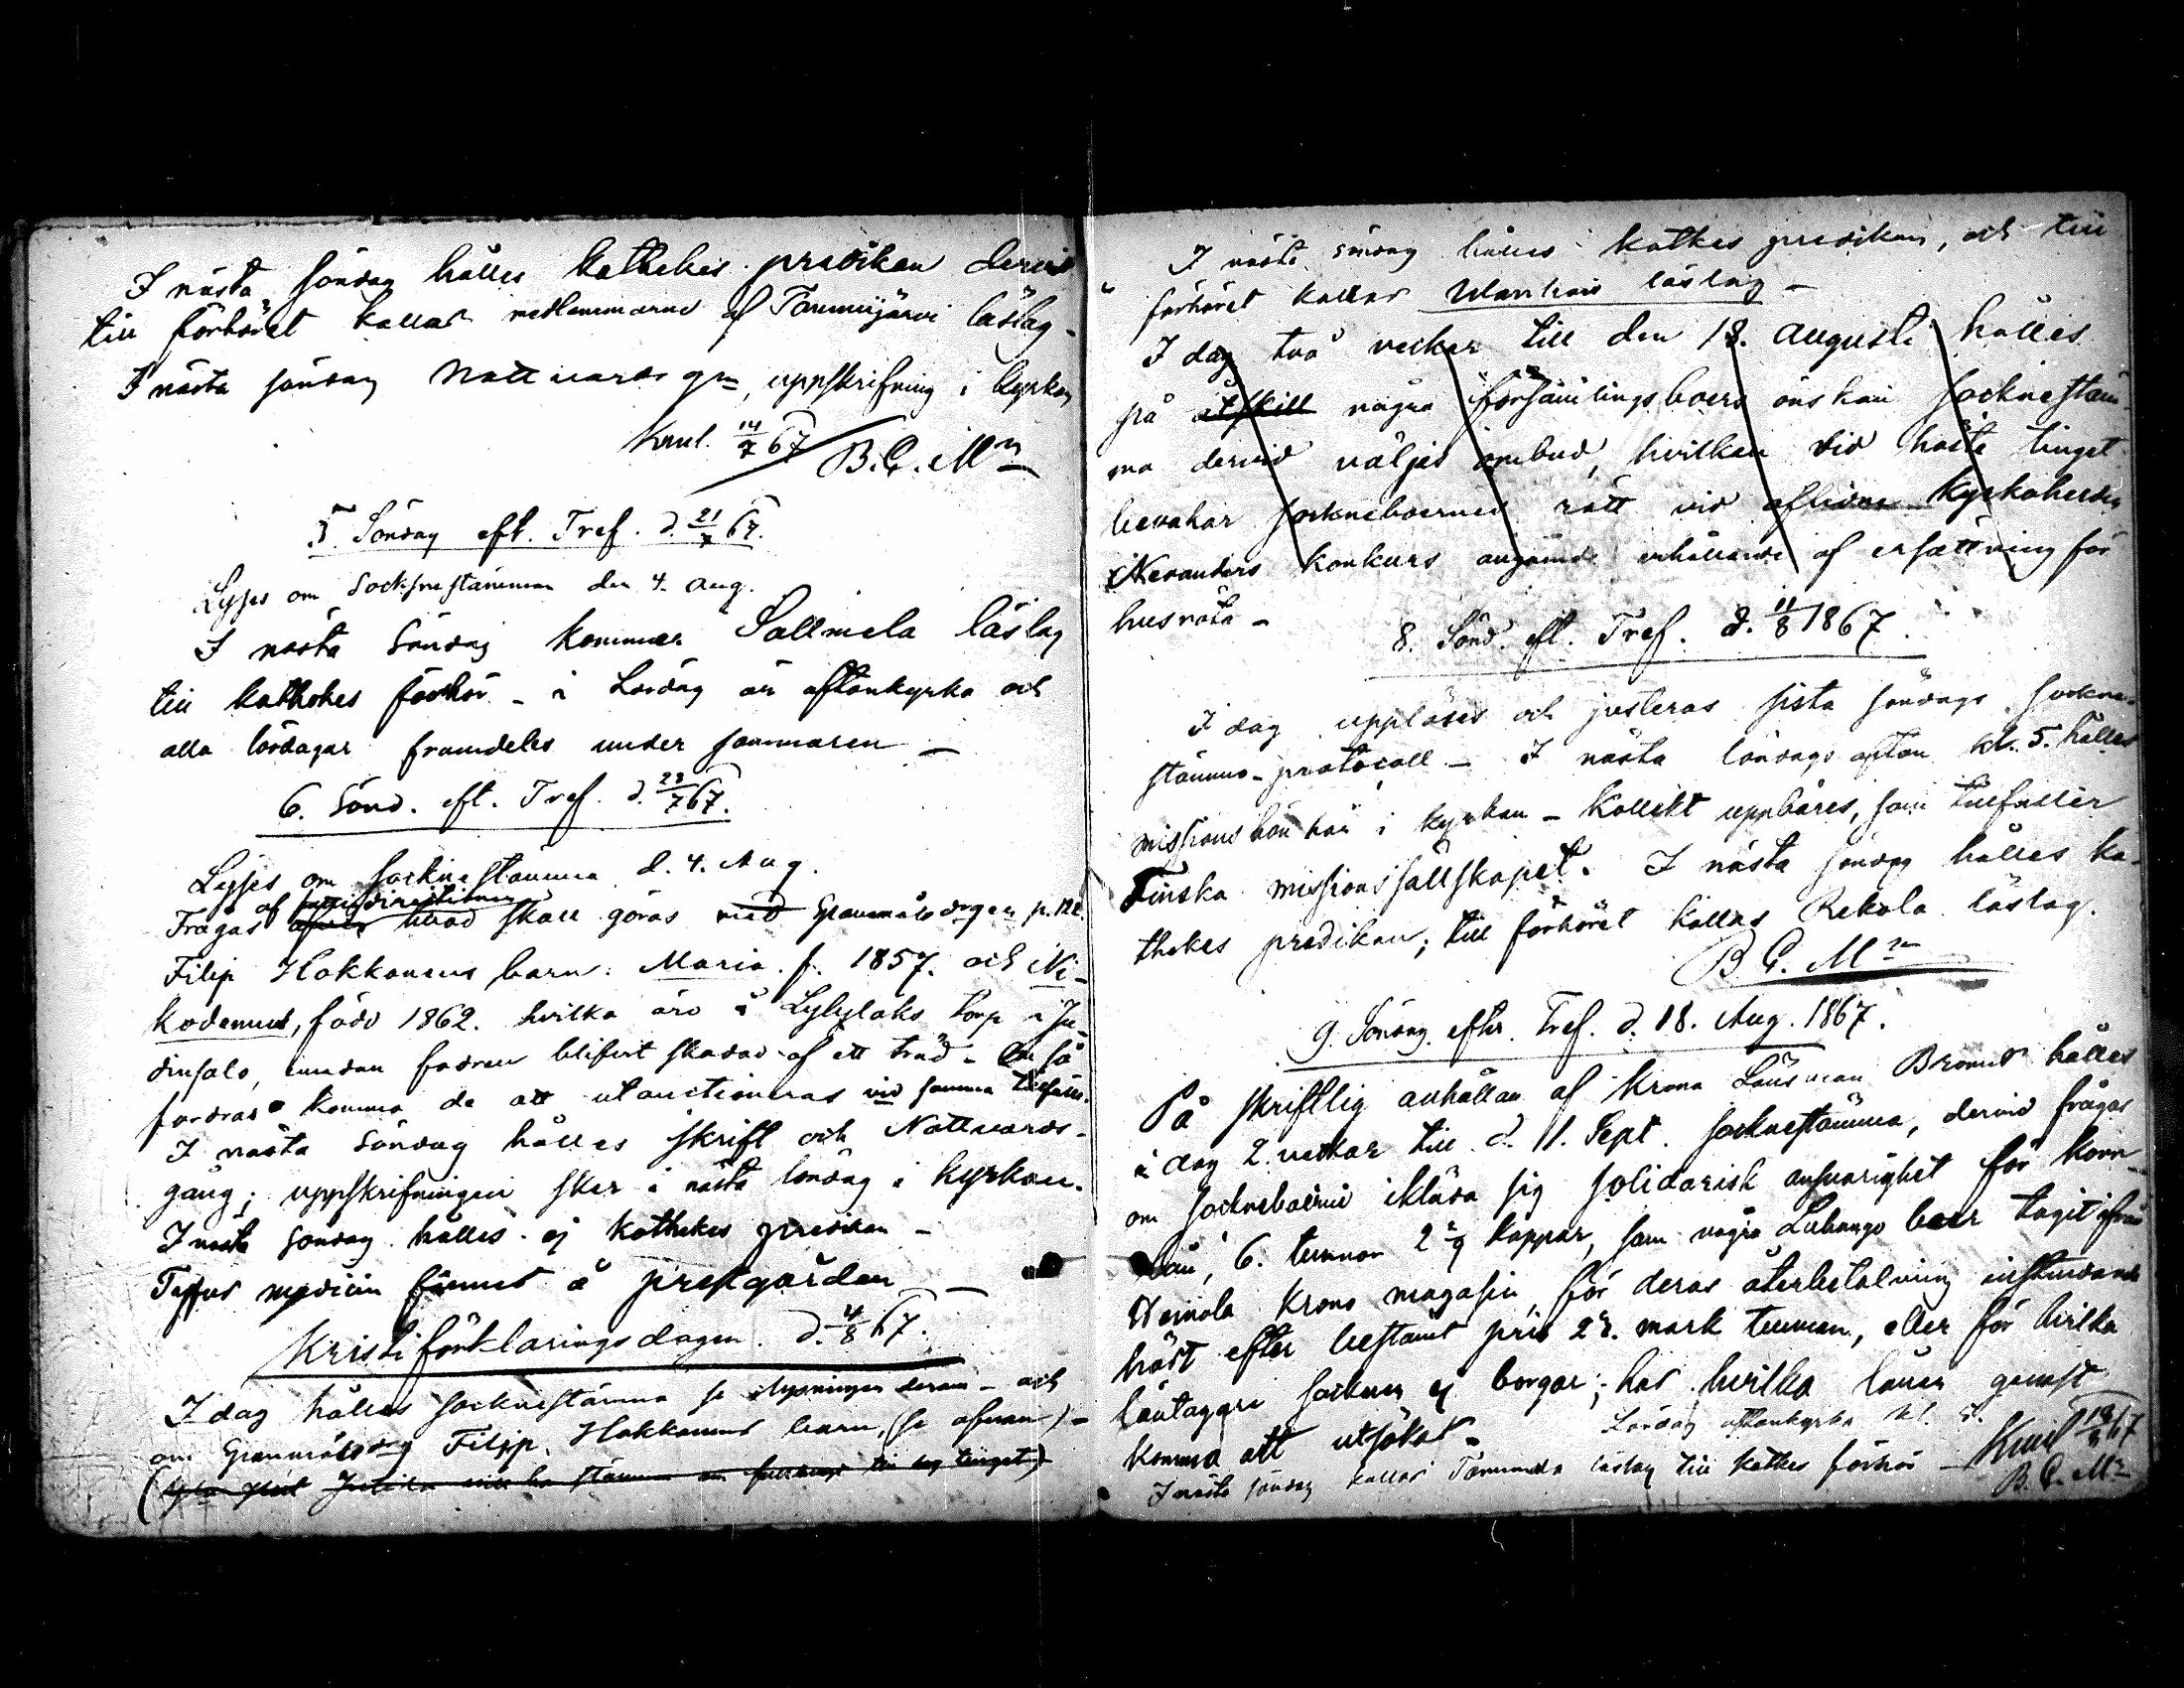 I nästa söndag hålles kathekes predikan dervid
till förhöret kallas medlemmarne af Tammijärvi läslag -
I nästa söndag Nattvards gng, uppskrifning i kyrkan
Kunl. 14/7 67 B.C. Mn
5. Söndag eft. Tref. d. 21/7 67.
Lyses om Socknestämman den 4. Aug.
I nästa Söndag kommer Sallmela läslag
till kathekes förhör - i Lördag är aftonkyrka och
alla lördagar framdeles under sommaren -
6. Sönd. eft. Tref. d. 28/7 67.
Lyses om Socknestämma d. 4. Aug.
Frågas af hvad skall göras med Granmäls drgen p. ne.
Filip Hokkanens barn: Maria f. 1857. och Ni-
kodemus, född 1862. hvilka äro å Lylylaks torp i Ju-
dinsalo, sundan fadren blifvit skadad af ett träd - Om så
fordras komma de att utauctioneras vid samma tillfälle.
I nästa Söndag hålles skrift och Nattvards-
gång; uppskrifningen sker i nästa lördag i kyrkan.
I nästa Söndag hålles ej kathekes predikan -
Tyfus medicin finnes å prestgården -
Kristi förklarings dagen d. 4/8 67.
I dag hålles socknestämma se lysningen derom - och
om Granmäls drg Filip. Hokkanens barn, (se ofvan) -
I nästa söndag hålles kathkes predikan, och till
förhöret kallas läslag -
I dag två veckor till den 18. Augusti hålles
på några församlingsboers önskan Socknestäm-
ma dervid väljes ombud, hvilken vid höste tinget
bevakar Sockneboernes rätt vid aflidne Kyrkoherden
Nevanders konkurs angående erhållande af ersättning för
husröta -
8. Sönd. eft. Tref. d. 11/8 1867.
I dag uppläses och justeras sista söndags Sockne-
stämmo-protocoll - I nästa söndags afton kl. 5. hålles
missions bön här i kyrkan - Kollekt uppbäres, som tillfaller
Finska missionssällskapet. I nästa söndag hålles ka-
thekes predikan; till förhöret kallas Rekola läslag.
B C. Mn
9. Söndag efter Tref. d. 18. Aug. 1867.
På skriftlig anhållan af Krono Länsman Bromé hålles
i dag 2. veckor till d. 1. Sept. socknestämma, dervid frågas
om sockneboerne ikläda sig solidarisk ansvarighet för korn-
lån, 6. tunnor 2 2/9 kappar, som några Luhango boer tagit ifrån
Heinola Krono magasin, för deras återbetalning instundande
höst efter bestämt pris 22. mark tunnan, eller för hvilka
låntagare socknen ej borgar; hos hvilka lånen genast
komma att utsökas. Lördag aftonkyrka kl. 5.
I nästa söndag kallas Tammela läslag till kathkes förhör - Kunl 18/8 67
B. C. Mn